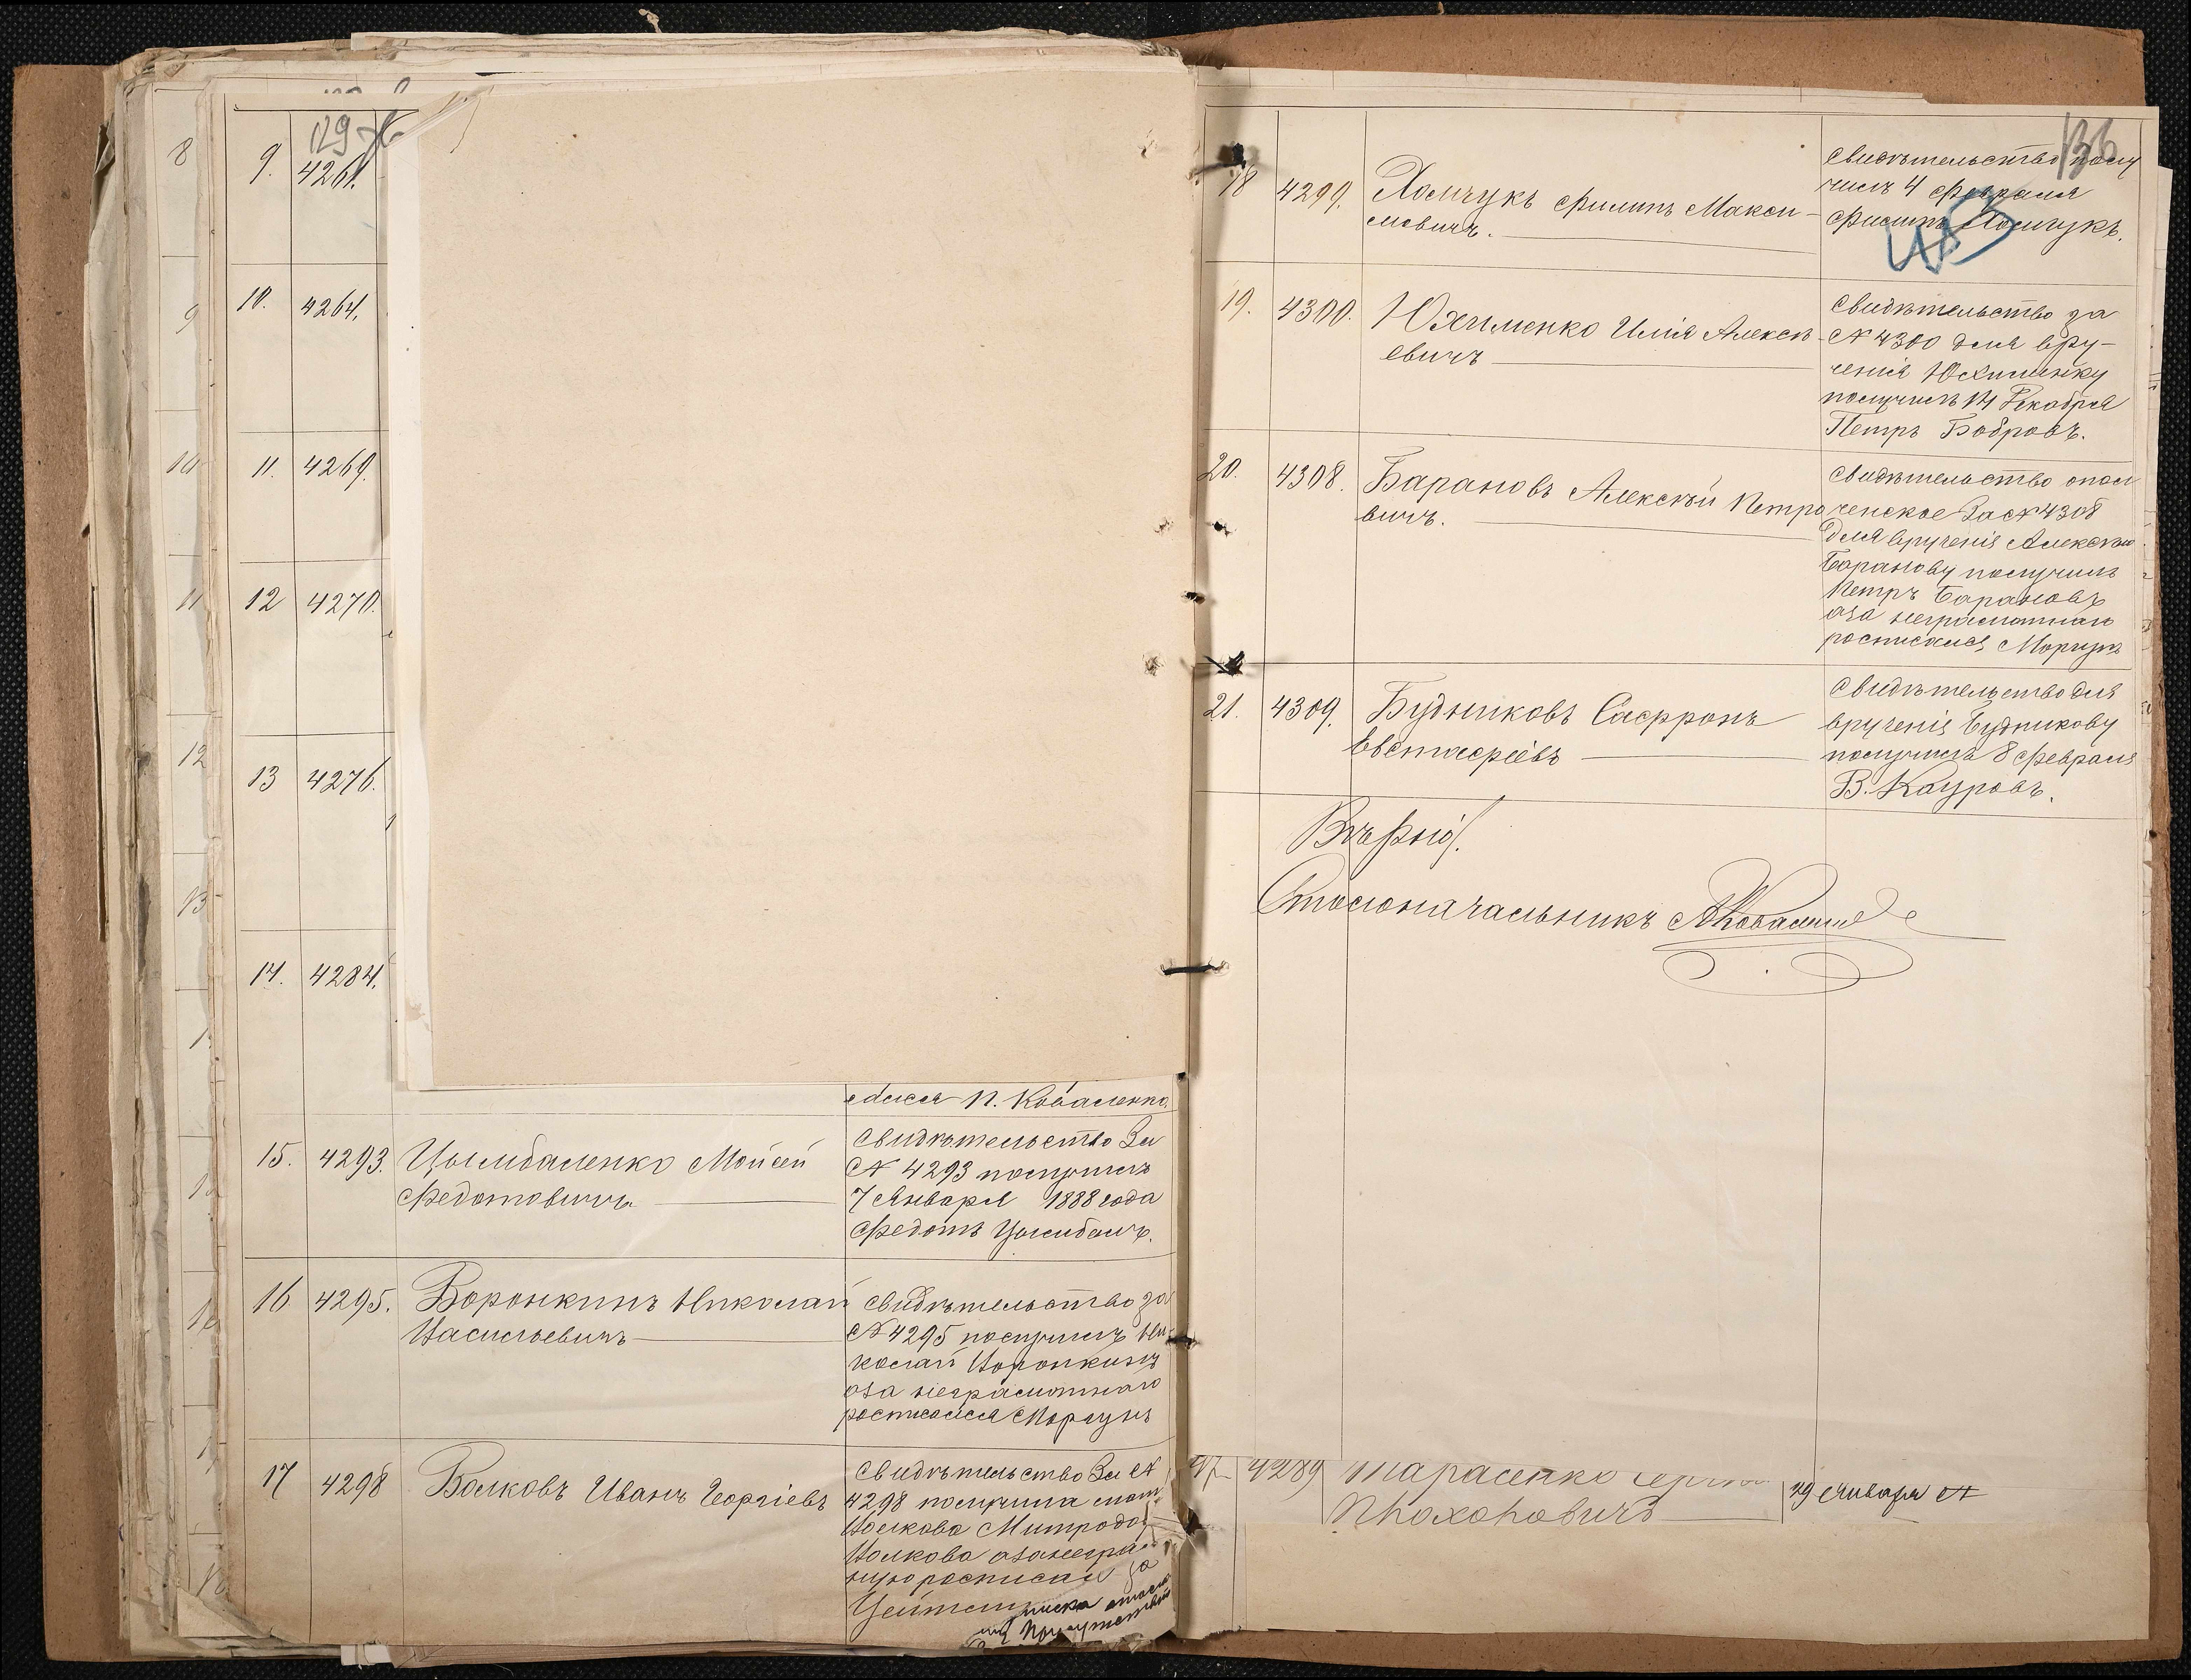 129
8
9. 4261.
9
10. 4264.
10
11. 4269.
11
12 4270.
12
13 4276.
13
14. 4284.
П. Коваленко.
15. 4293. Цымбаленко Мойсей
Федотовичъ
Свидѣтельство За
№ 4293 получилъ
7 Января 1888 года
Федотъ Цымбалъ.
16 4295. Воронкинъ Николай
Васильевичъ
Свидѣтельство за
№ 4295 получилъ Ни-
колай Воронкинъ
а за неграмотнаго
росписался Моргунъ
17 4298 Волковъ Иванъ Георгіевъ
Свидѣтельство За №
4298 получила мат
Волкова Митродо
Волкова а за неграм
ную росписал
136
18 4299. Хомчукъ Филипъ Макси-
мовичъ.
Свидѣтельство полу
чилъ 4 февраля
Филипъ Хомчукъ.
19. 4300. Юхименко Илія Алексѣ-
евичъ
Свидѣтельство за
№ 4300 для вру-
ченія Юхименку
получилъ 14 Декабря
Петръ Бобровъ.
20. 4308. Барановъ Алексѣй Петро
вичъ.
Свидѣтельство опол
ченское За № 4308
для врученія Алексѣю
Баранову получилъ
Петръ Барановъ
а за неграмотнаго
росписался Моргунъ
21. 4309. Будниковъ Сафронъ
Евстафіевъ
Свидѣтельство для
врученія Будникову
получилъ 8 февраля
В. Кауровъ.
Вѣрно:
Столоначальникъ
4289 Тарасенко
Прохоровичъ
29 Января